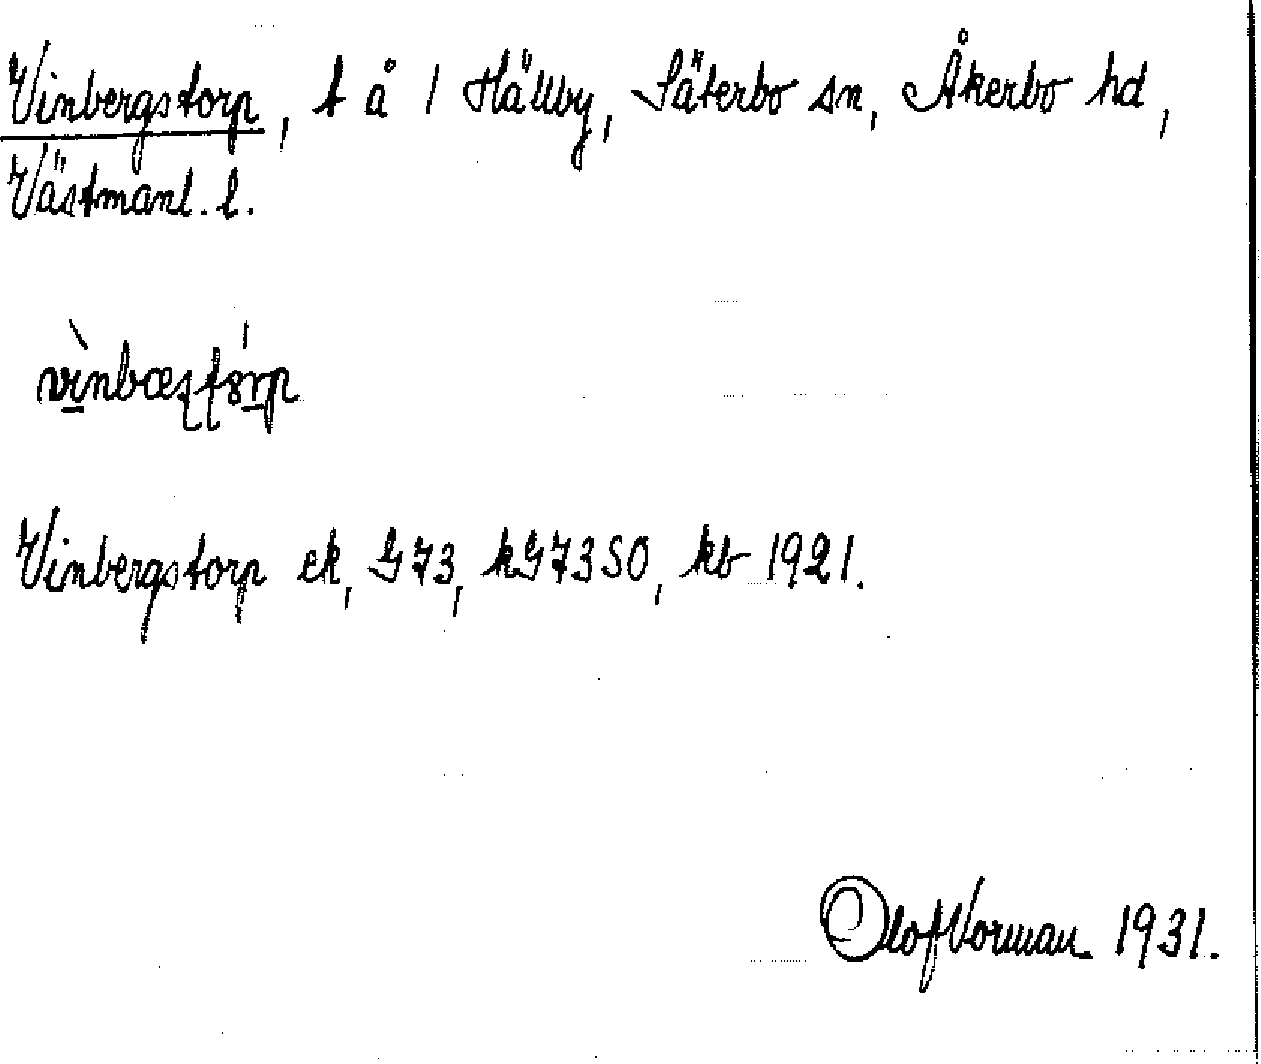 Vinbergstorp, t å 1 Hällby, Säterbo sn, Åkerbo hd,
Västmanl. l.
Vinbergstorp ek, G73, kG73SO, kb 1921.
Olof Vorman 1931.